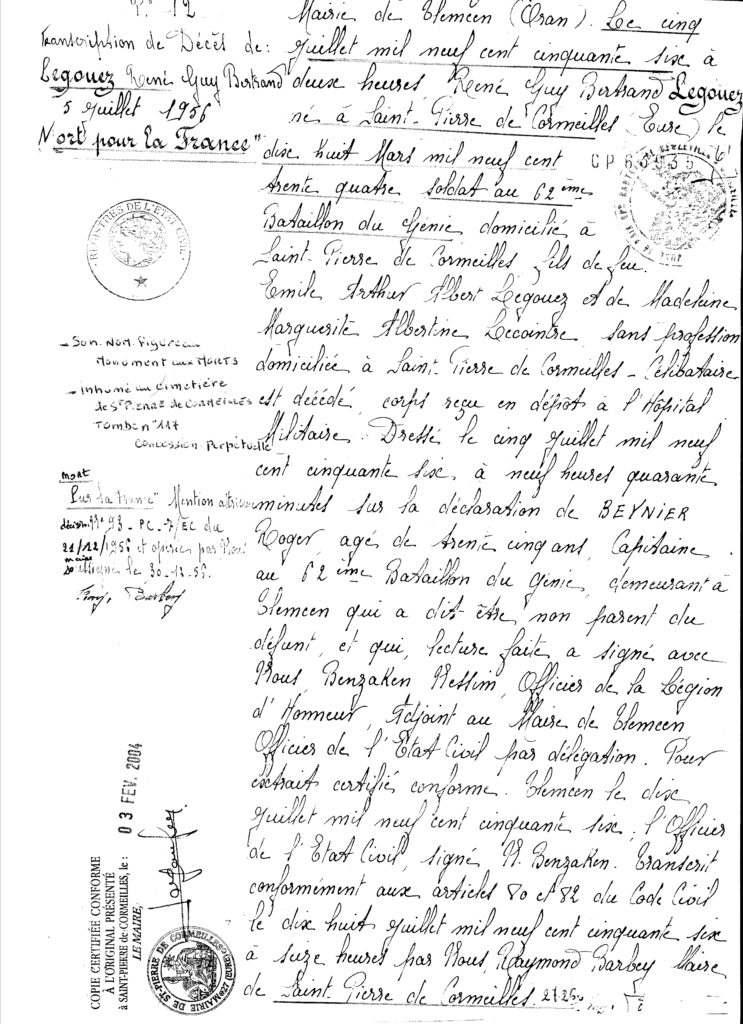 N° 12
Transcription de Décès de:
Legouez René Guy Bertrand
5 Juillet 1956
"Mort pour la France"
REGISTRES DE L'ETAT CIVIL
- Son Nom figure au
Monument aux Morts
- inhumé au cimetière
de St PIERRE de CORMEILLES
Tombe n° 117
Concession Perpétuelle
mort
"Pour la France" Mention
décision N° 93 - PC - 7/EC du
21/12/1956 et opérée par Nous
maire
soussigné le 30-12-56.
Barbey
Mairie de Tlemcen (Oran). Le cinq
Juillet mil neuf cent cinquante six à
deux heures, René Guy Bertrand Legouez
né à Saint-Pierre de Cormeilles (Eure) le
dix huit Mars mil neuf cent
trente quatre, soldat au 62ème
Bataillon du Génie domicilié à
Saint-Pierre de Cormeilles, fils de feu
Emile Arthur Albert Legouez et de Madeleine
Marguerite Albertine Lecointre, sans profession
domiciliée à Saint-Pierre de Cormeilles - Célibataire
est décédé, corps reçu en dépôt à l'Hôpital
Militaire. Dressé le cinq Juillet mil neuf
cent cinquante six, à neuf heures quarante
minutes sur la déclaration de BEYNIER
Roger, agé de trente cinq ans, Capitaine
au 62ème Bataillon du génie, demeurant à
Tlemcen qui a dit être non parent du
défunt, et qui, lecture faite a signé avec
Nous, Benzaken Nessim, Officier de la Légion
d'Honneur, Adjoint au Maire de Tlemcen
Officier de l'Etat Civil par délégation. Pour
extrait certifié conforme. Tlemcen le dix
Juillet mil neuf cent cinquante six, l'Officier
de l'Etat Civil, signé N. Benzaken. Transcrit
conformément aux articles 80 et 82 du Code Civil
le dix huit Juillet mil neuf cent cinquante six
à seize heures par Nous, Raymond Barbey Maire
de Saint-Pierre de Cormeilles
CP 63935
COPIE CERTIFIÉE CONFORME
À L'ORIGINAL PRÉSENTÉ
à SAINT-PIERRE-de-CORMEILLES, le :
03 FEV. 2004
LE MAIRE,
MAIRIE DE ST-PIERRE DE CORMEILLES (EURE) 27